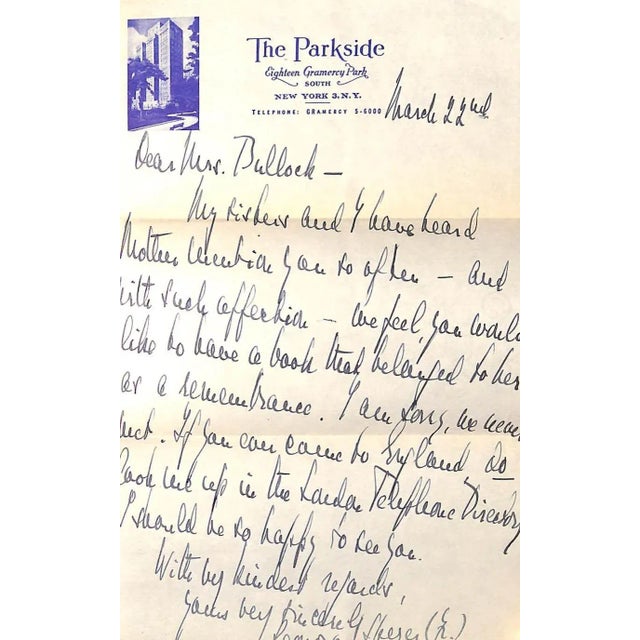 The Parkside
Eighteen Gramercy Park
SOUTH
NEW YORK 3. N.Y.
TELEPHONE: GRAMERCY 5-6000
March 22nd
Dear Mrs. Bullock —
My sisters and I have heard
Mother mention you so often — and
with such affection — we feel you would
like to have a book that belonged to her
as a remembrance. I am sorry, we never
met. If you ever come to England do
look me up in the London Telephone Directory
I should be so happy to see you.
With my kindest regards,
yours very sincerely